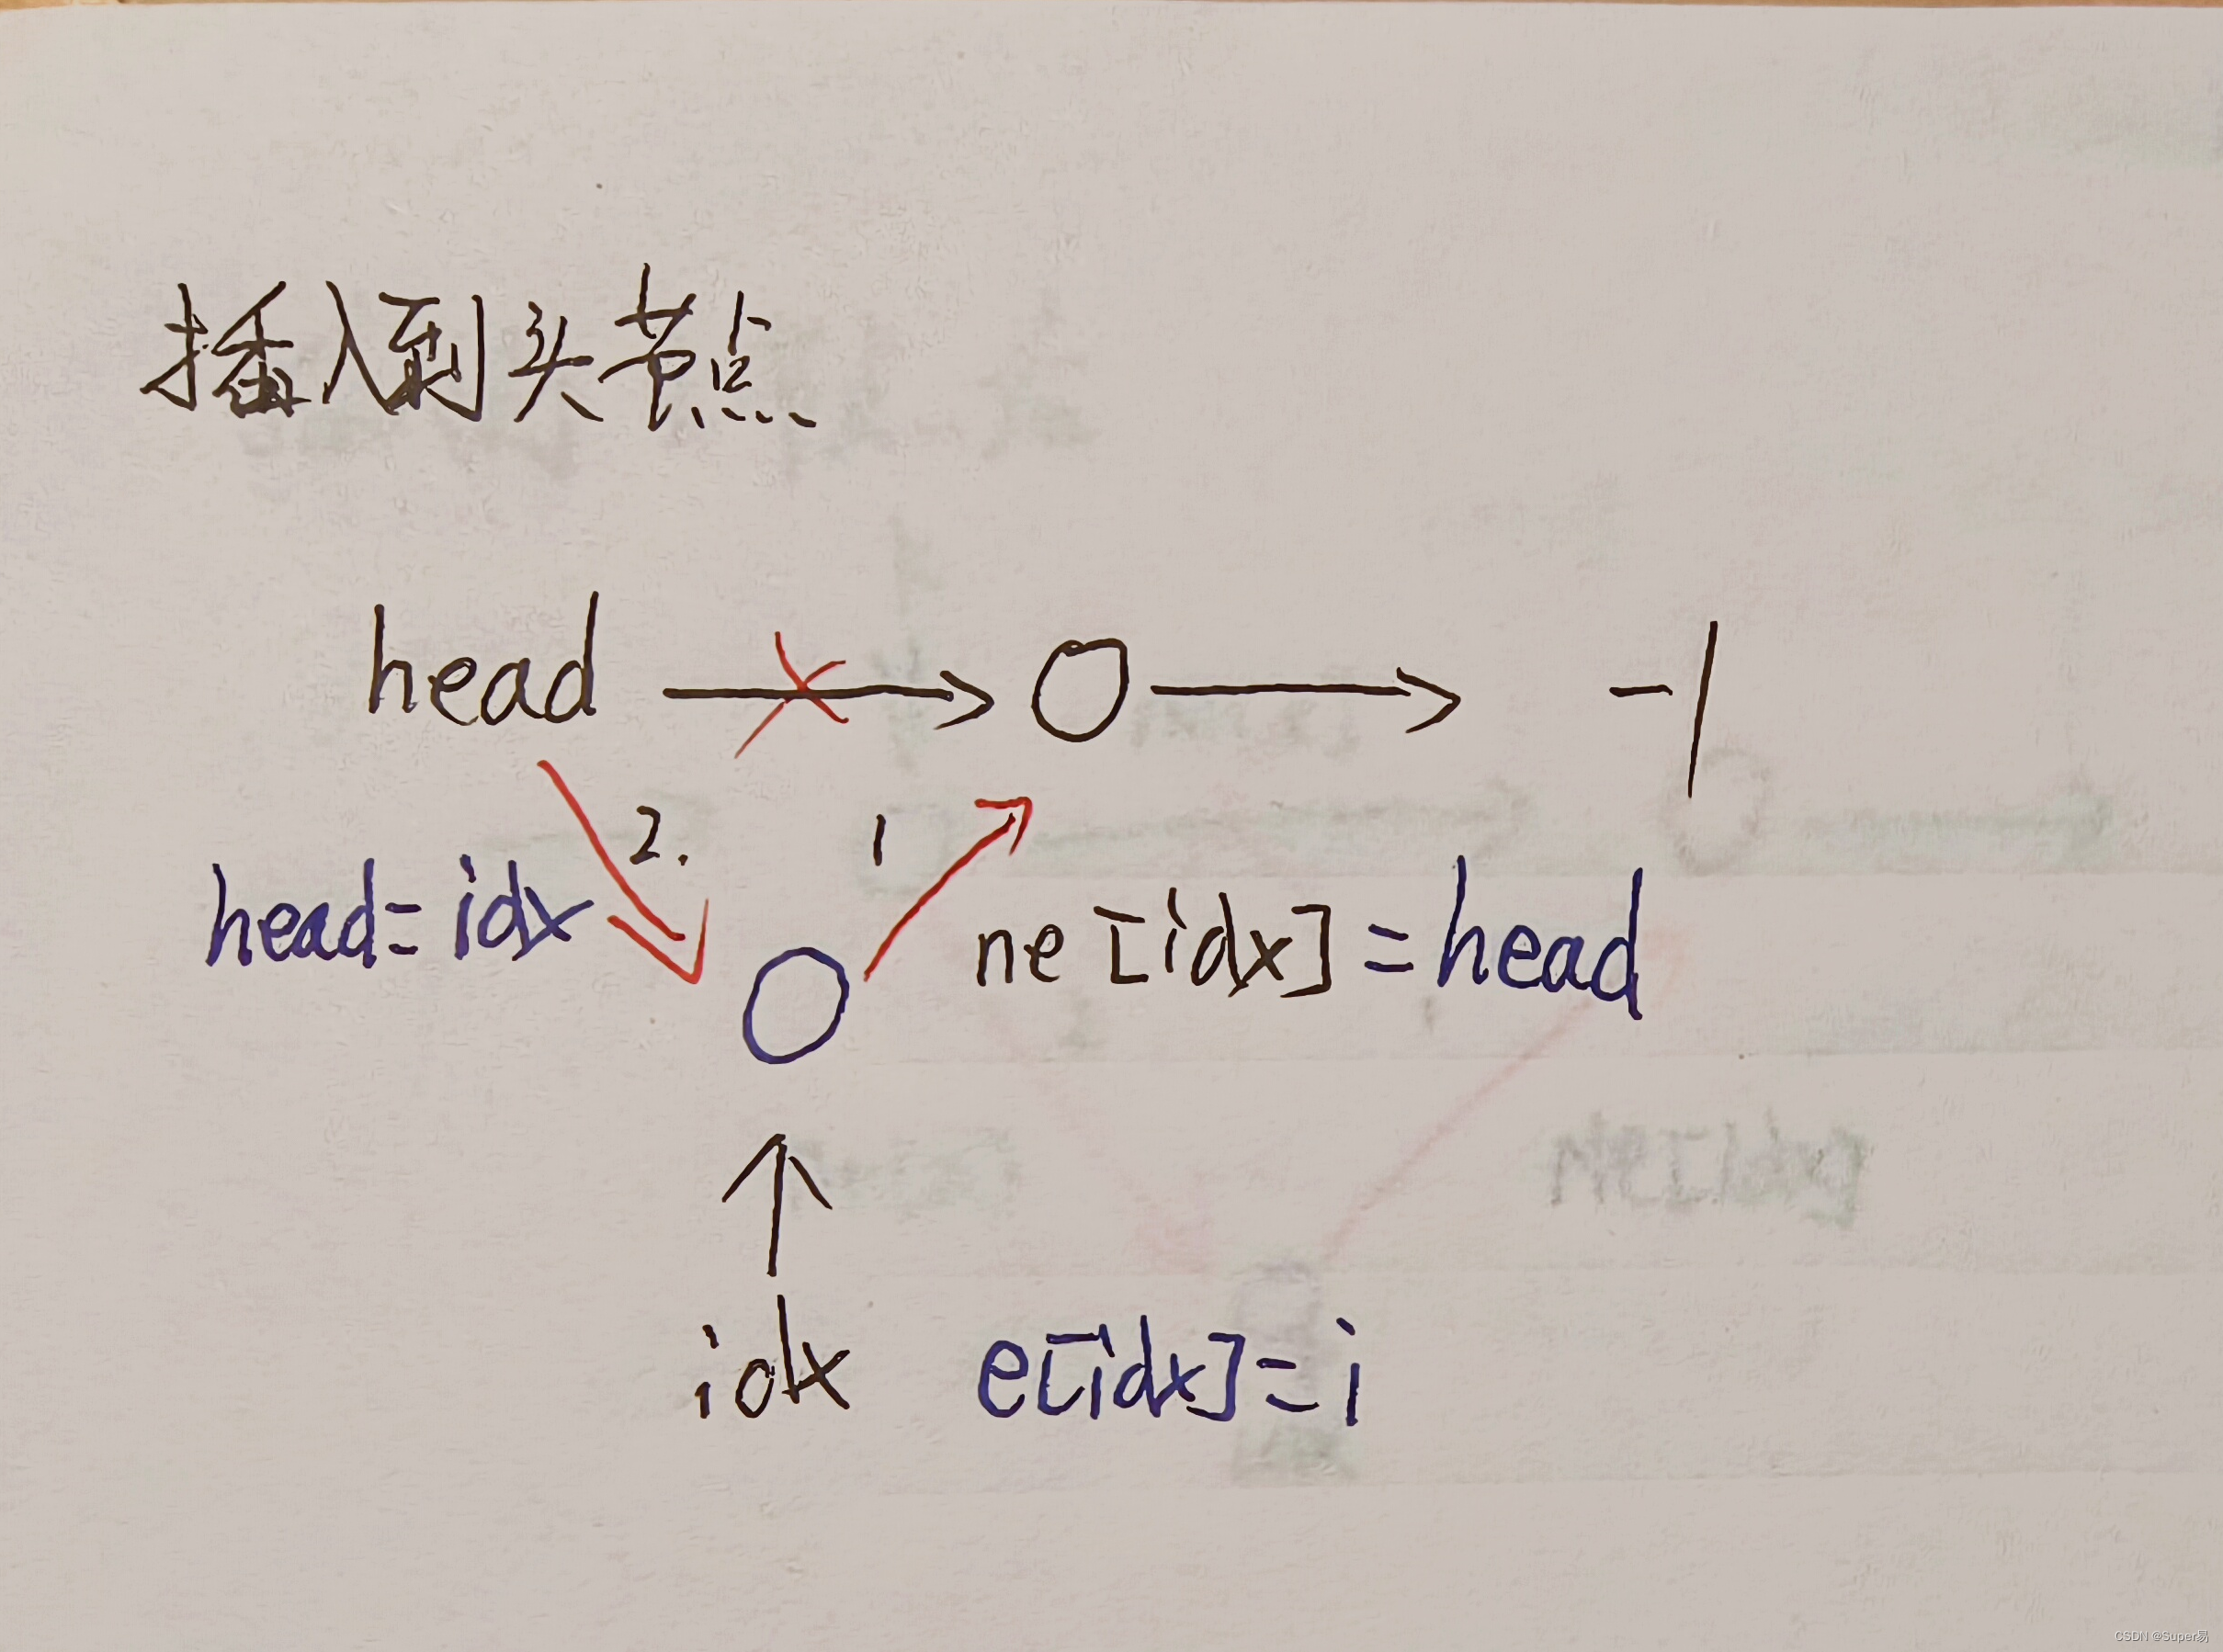 插入到头节点
head O -1
2. 1
head=idx
ne[idx]=head
idx e[idx]=i
CSDN @Super易